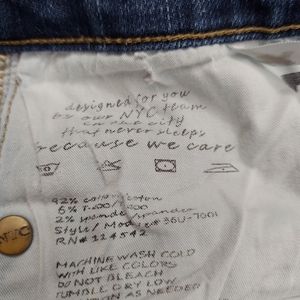 designed for you
by our NYC team
in our city
that never sleeps
because we care
92% cotton/coton
6% T-400/T-400
2% spandex/spandex
Style/Modèle 36U-7001
RN# 124542
MACHINE WASH COLD
WITH LIKE COLORS
DO NOT BLEACH
TUMBLE DRY LOW
IRON AS NEEDED
NYC